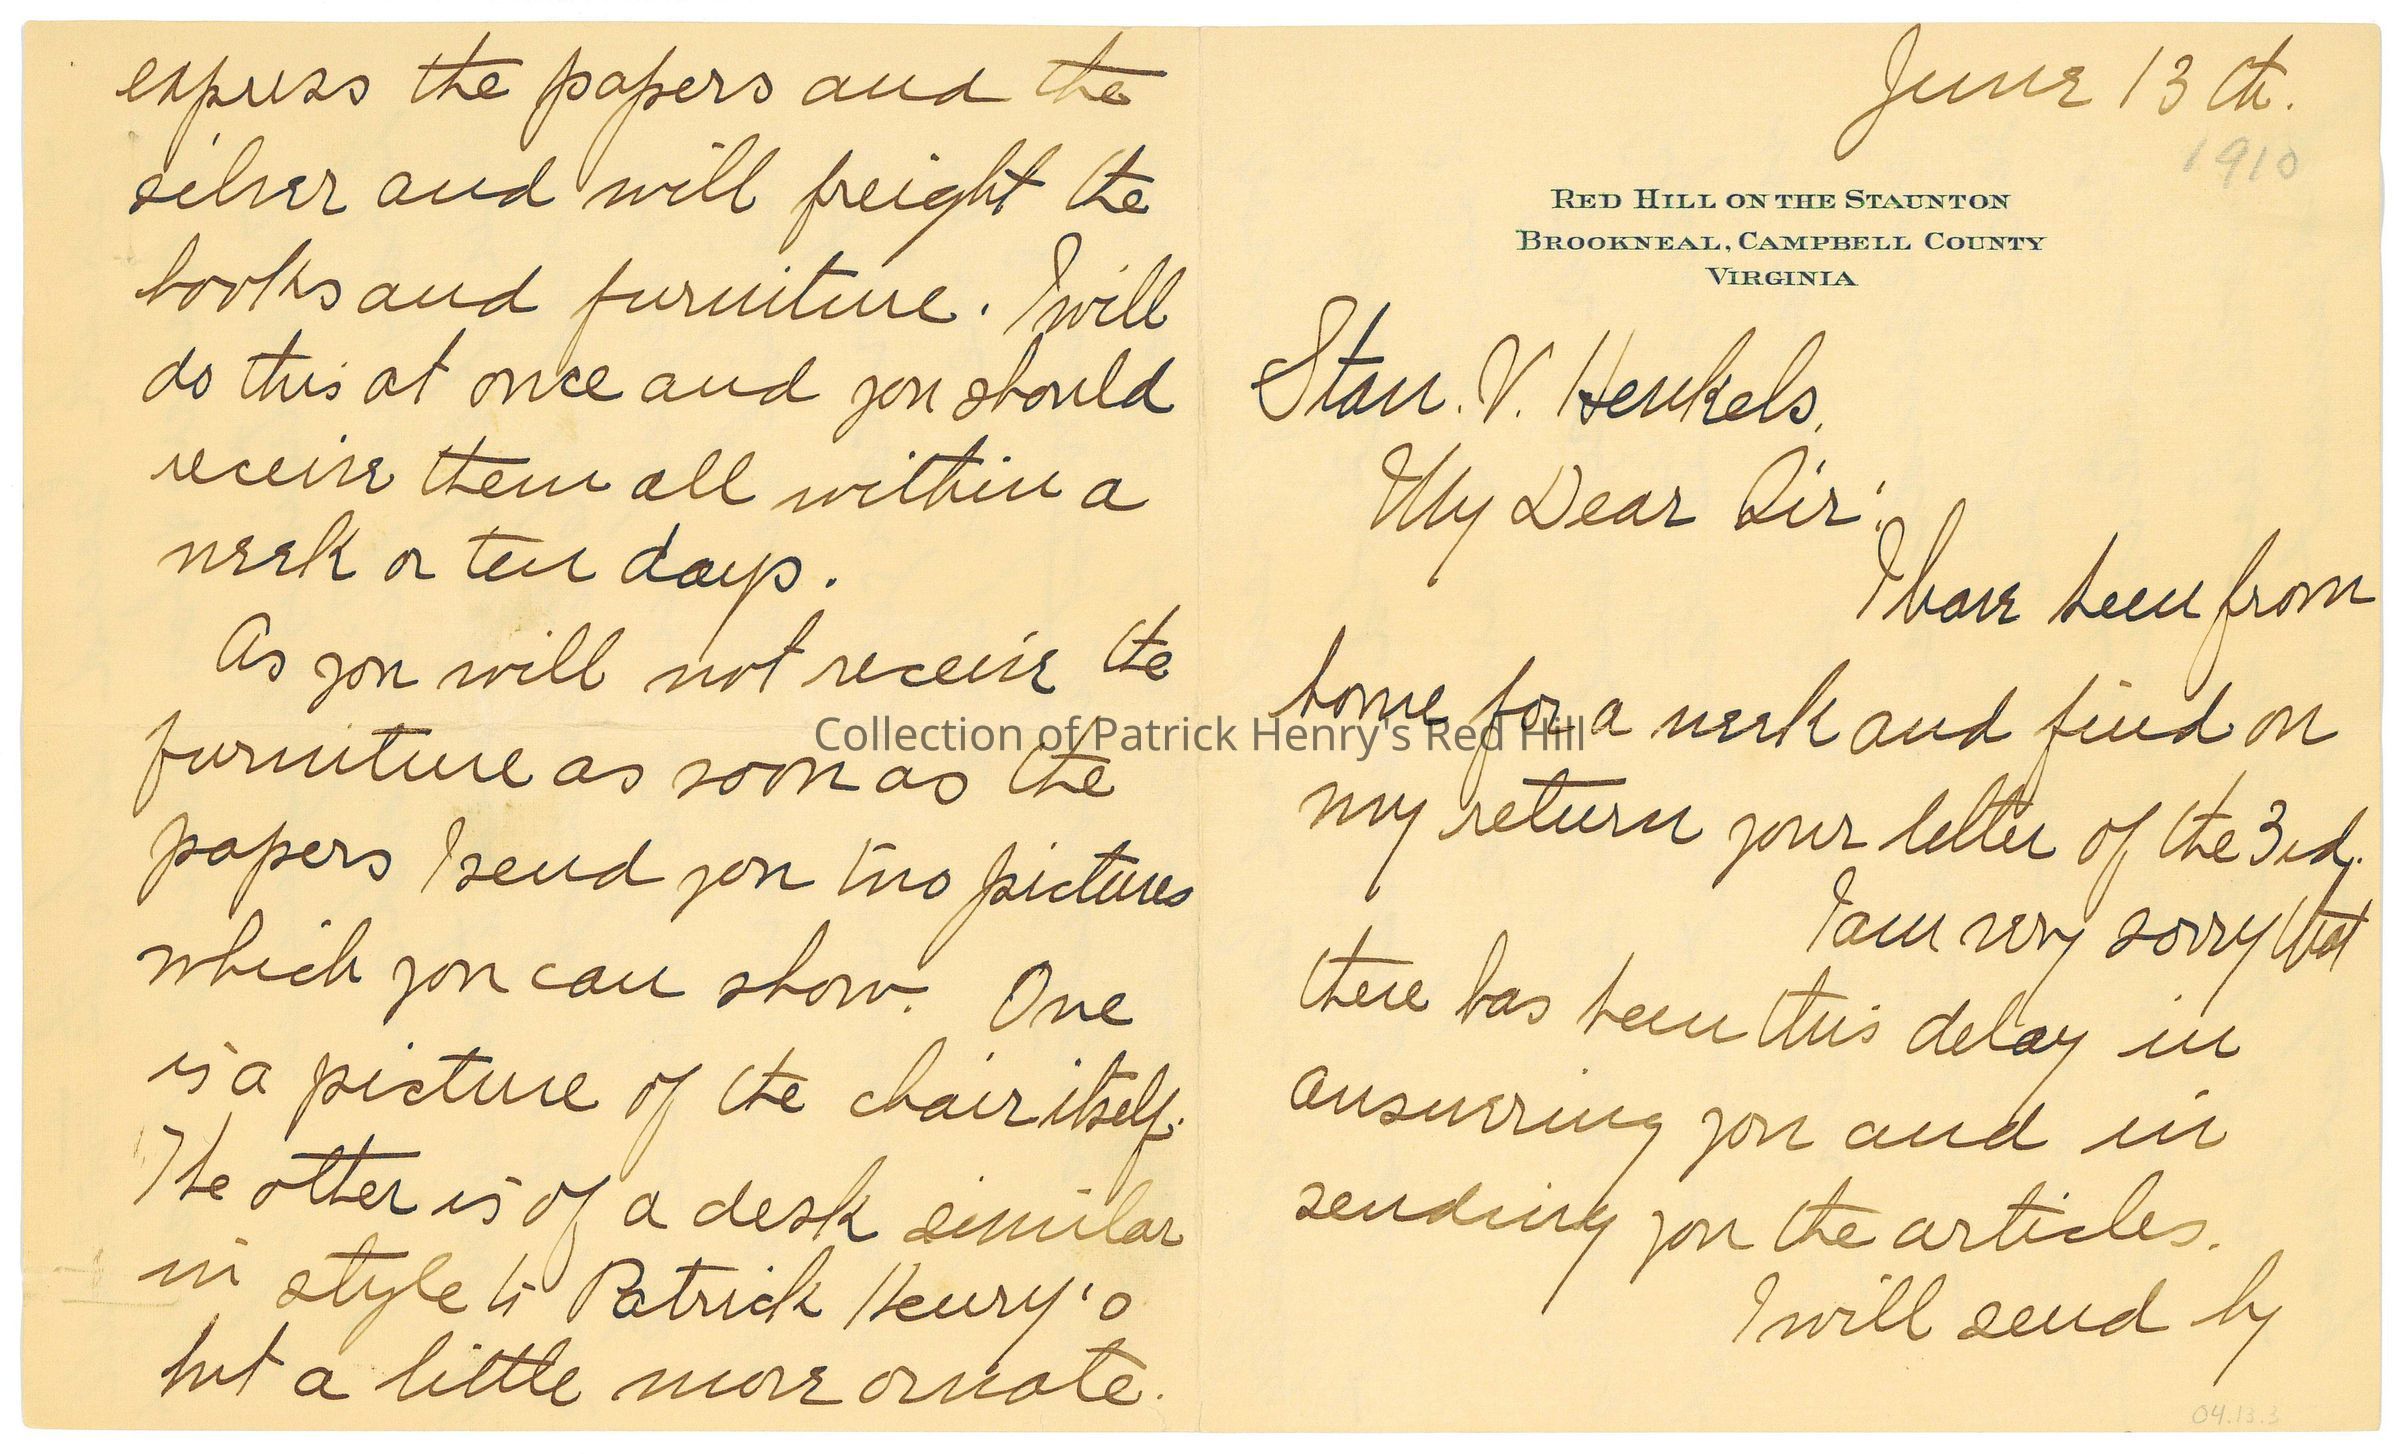 June 13th.
1910
RED HILL ON THE STAUNTON
BROOKNEAL, CAMPBELL COUNTY
VIRGINIA
Stan. V. Henkels.
My Dear Sir:
I have been from
home for a week and find on
my return your letter of the 3rd.
I am very sorry that
there has been this delay in
answering you and in
sending you the articles.
I will send by
04.13.3
express the papers and the
silver and will freight the
books and furniture. I will
do this at once and you should
receive them all within a
week or ten days.
As you will not receive the
furniture as soon as the
papers I send you two pictures
which you can show. One
is a picture of the chair itself.
The other is of a desk similar
in style to Patrick Henry's
but a little more ornate.
Collection of Patrick Henry's Red Hill